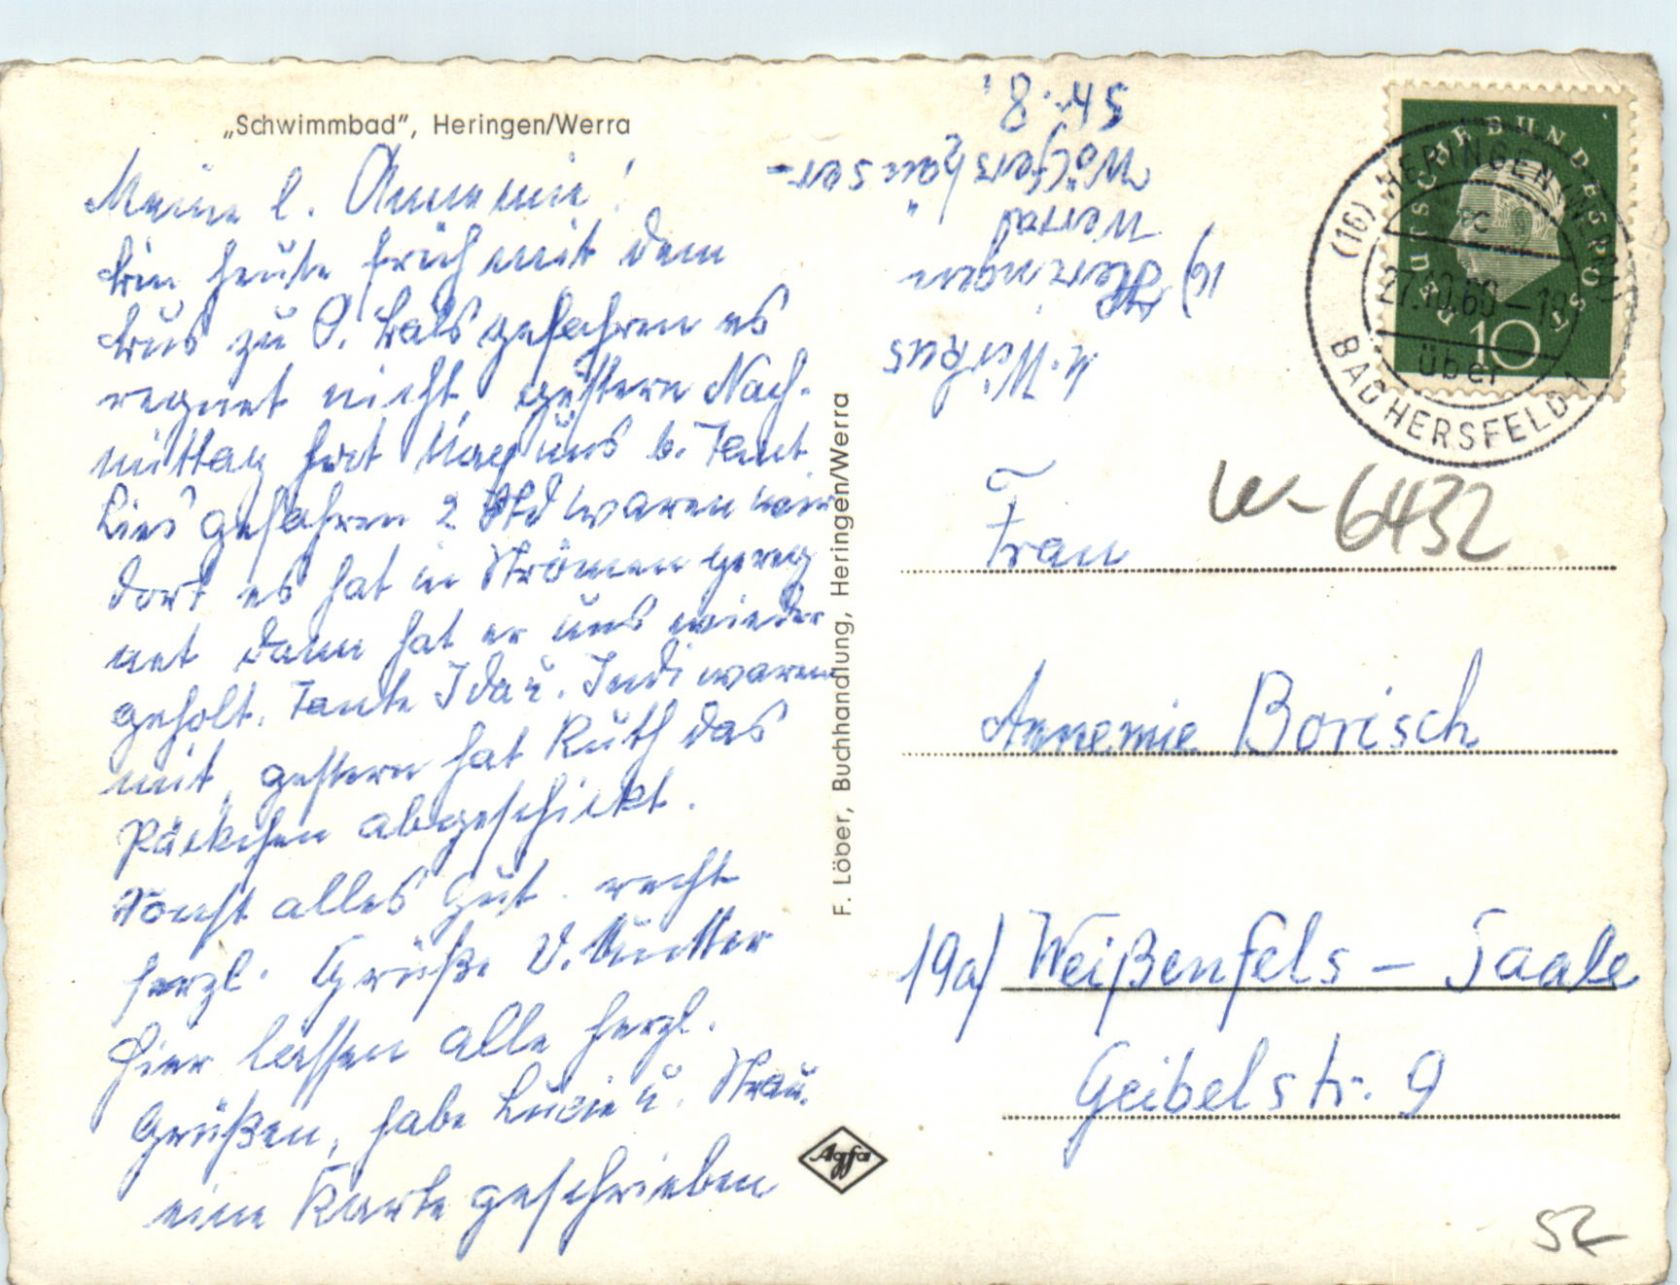 „Schwimmbad", Heringen/Werra
Meine l. Annemie!
bin heute früh mit dem
bus zu gefahren es
regnet nicht, gestern Nach-
mittag hat uns b. Tant
Lies gefahren 2 Std waren wir
dort es hat in Strömen gereg
net dann hat er uns wieder
geholt. Tante Ida u. waren
mit, gestern hat Ruth das
Päckchen abgeschickt.
Sonst alles gut. recht
herzl. Grüße v. Mutter
hier lassen alle herzl.
Grüßen, habe Lucie u.
eine Karte geschrieben
F. Löber, Buchhandlung, Heringen/Werra
Agfa
16) Heringen
Werra
Wölfershauser-
Str. 8.
DEUTSCHE BUNDESPOST
10
(16) HERINGEN (WERRA)
27.10.60-18
über
BAD HERSFELD 1
W-6432
Frau
Annemie Borisch
19a) Weißenfels - Saale
Geibelstr. 9